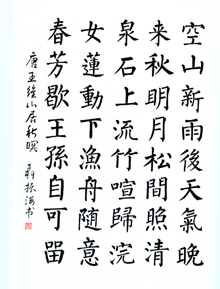 空山新雨後天氣晚
来秋明月松間照清
泉石上流竹喧歸浣
女蓮動下漁舟隨意
春芳歇王孫自可留
唐王維山居秋暝